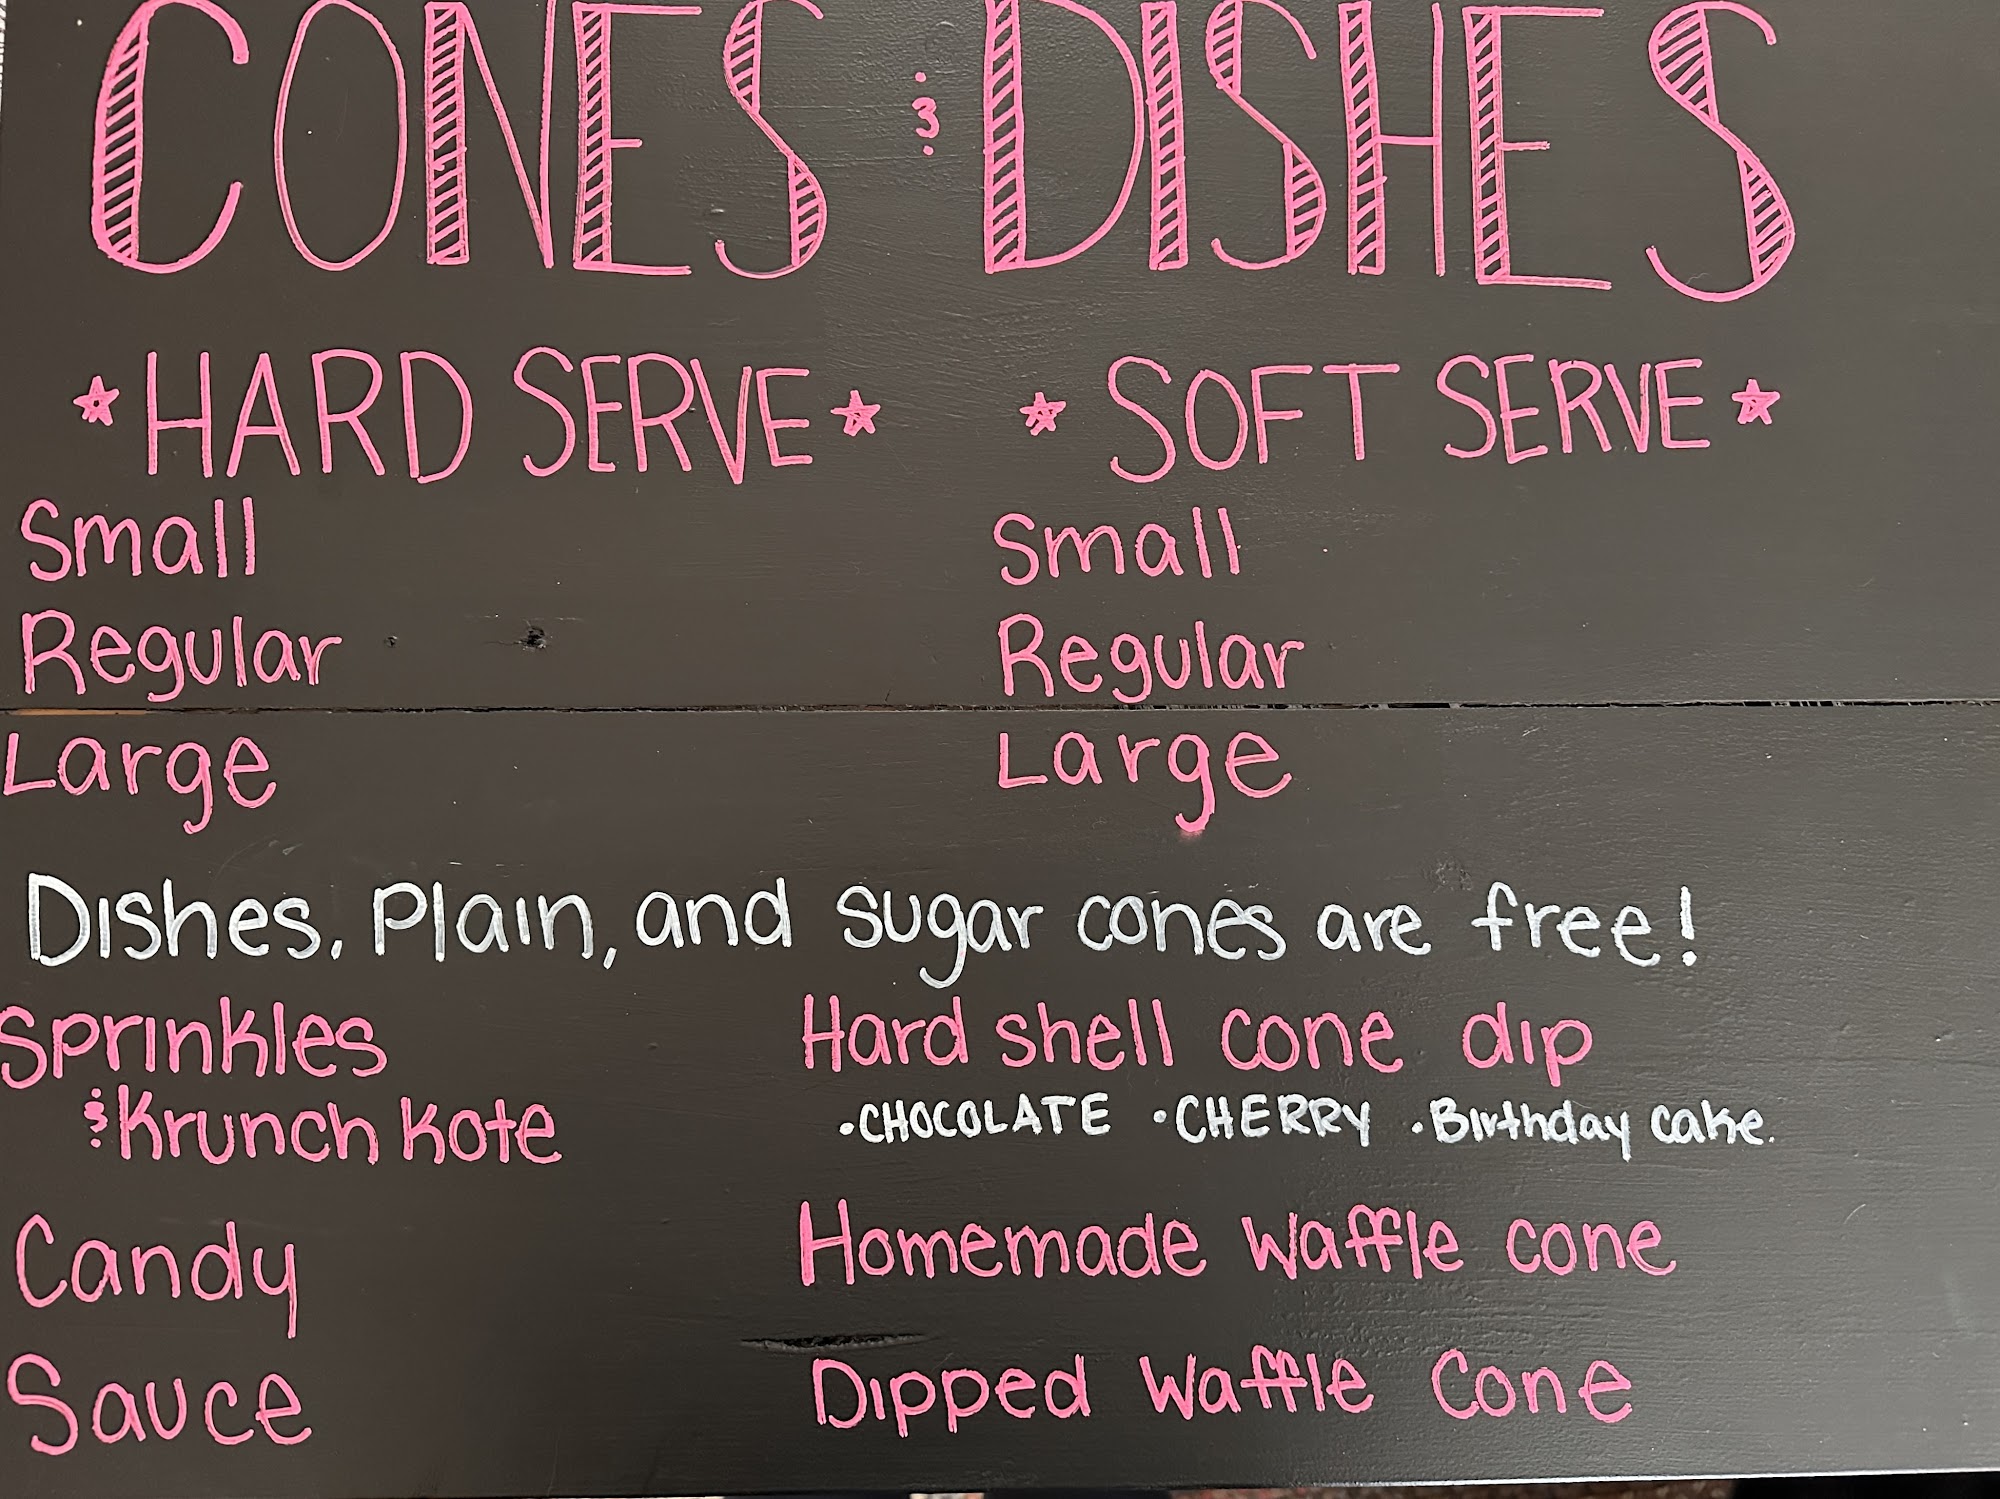 CONES & DISHES
HARD SERVE
Small
Regular
Large
SOFT SERVE
Small
Regular
Large
Dishes, Plain, and sugar cones are free!
Sprinkles
& Krunch Kote
Candy
Sauce
Hard shell cone dip
•CHOCOLATE •CHERRY •Birthday cake.
Homemade Waffle cone
Dipped Waffle Cone